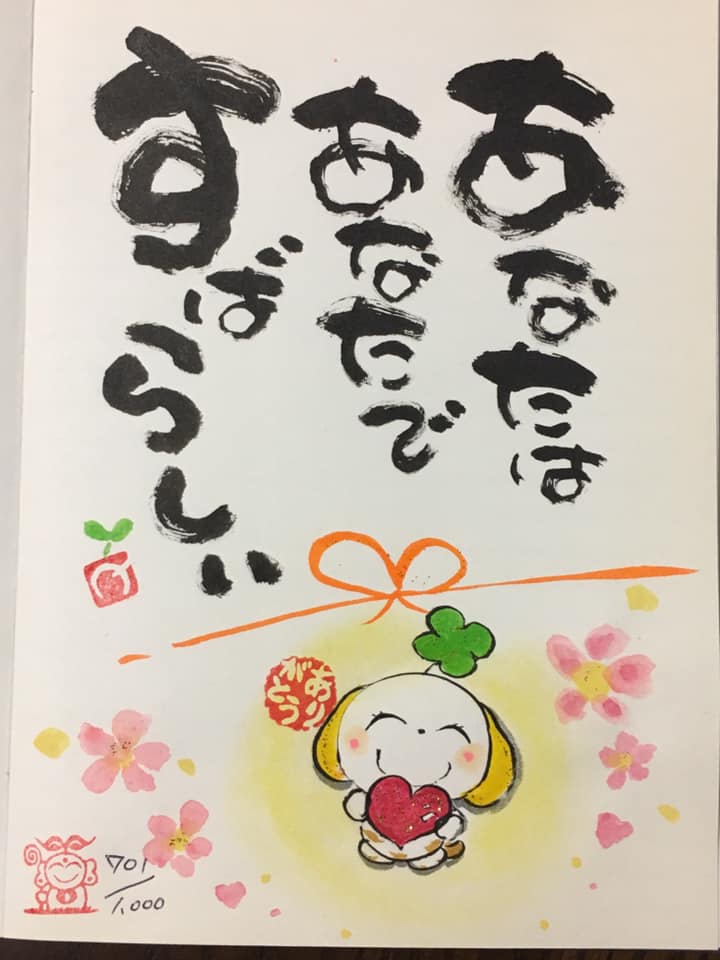 あなたは
あなたで
すばらしい
ありがとう
701/1,000